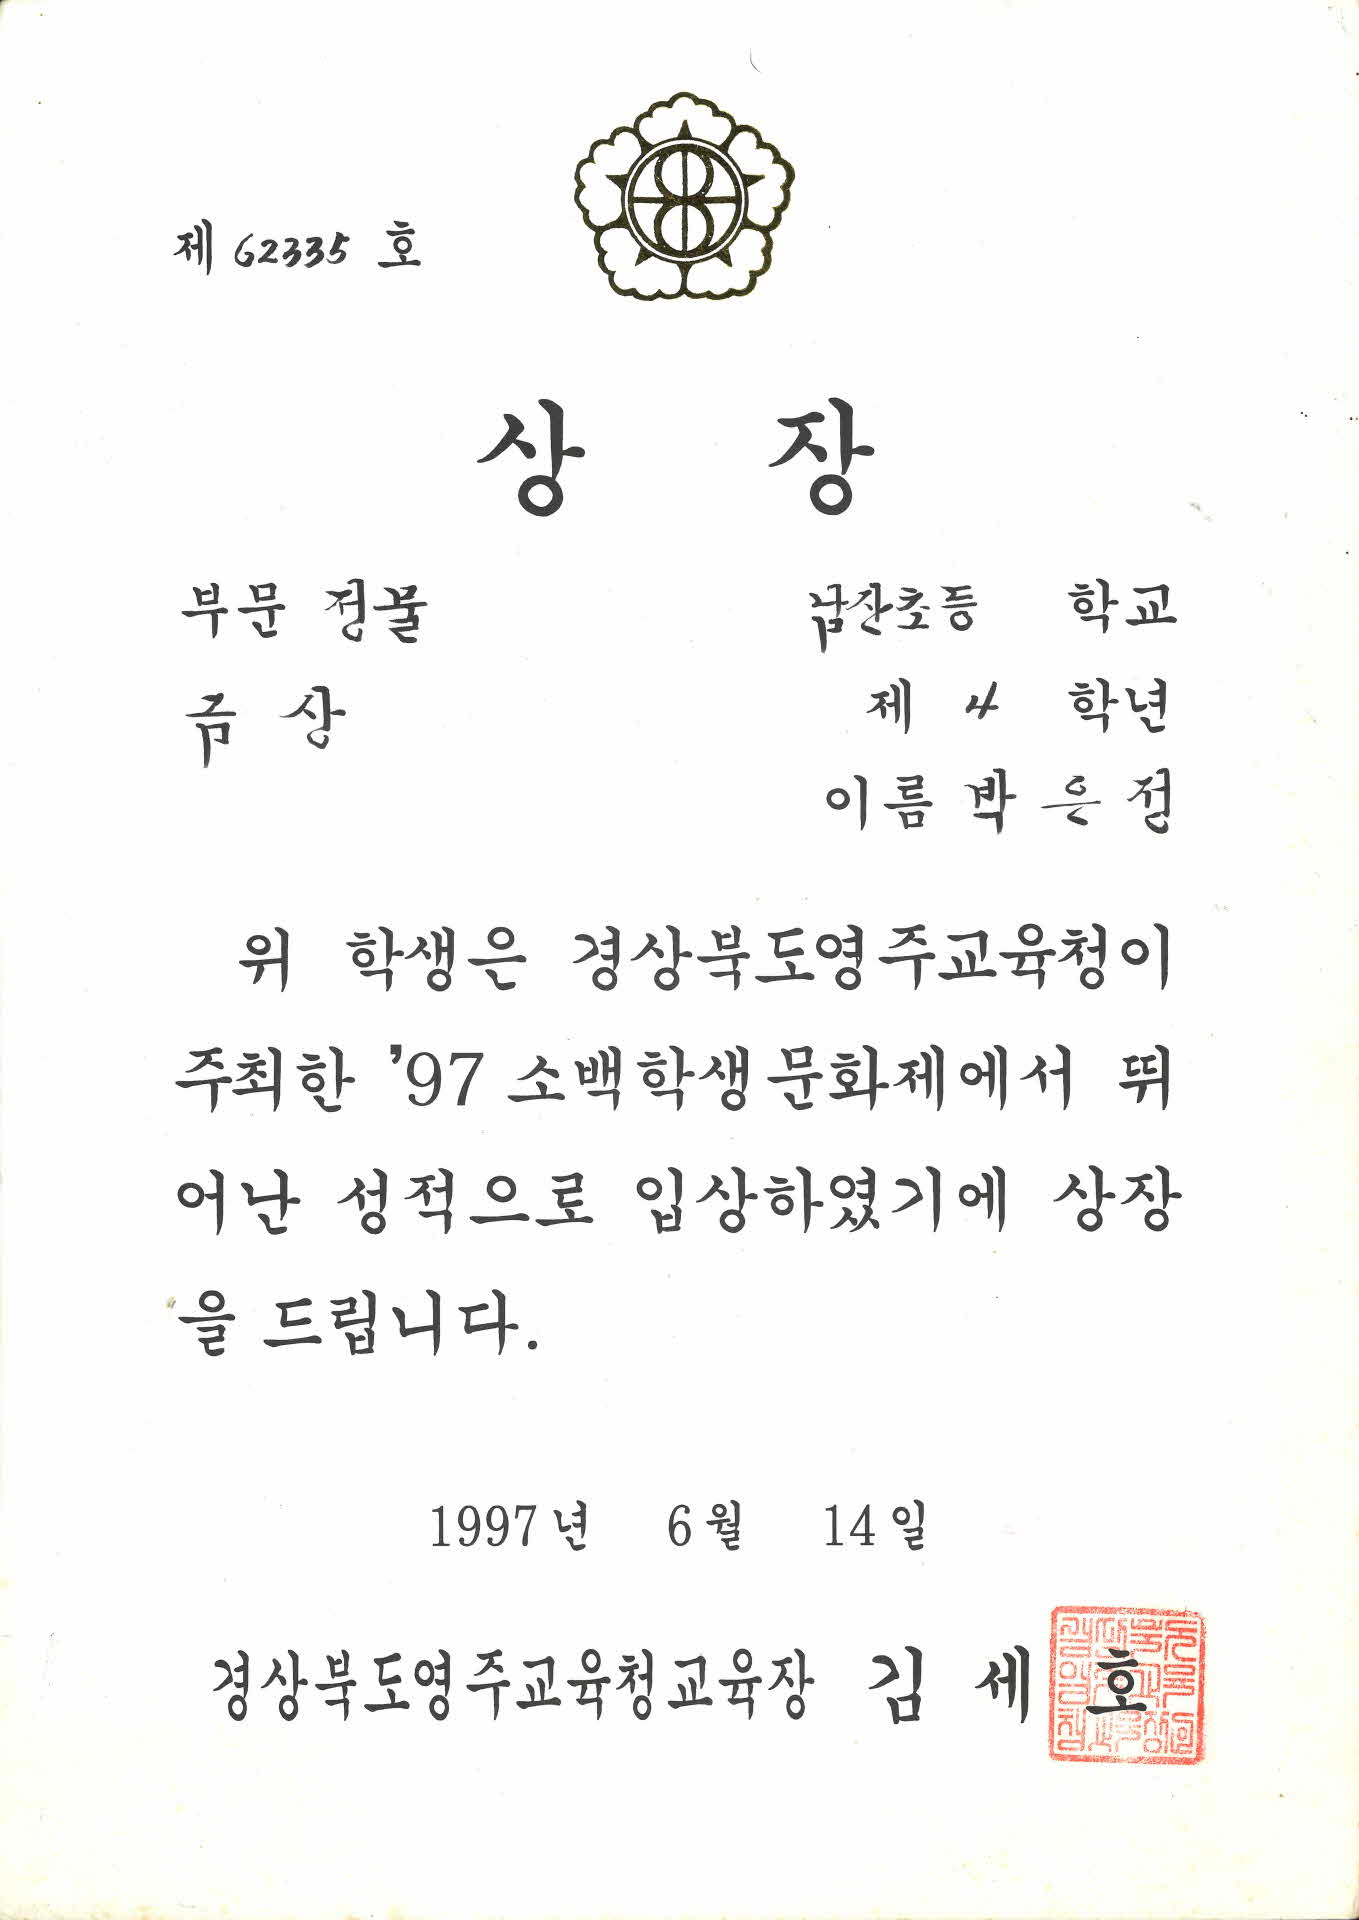 제 62335 호
상 장
부문 정물
금 상
남산초등 학교
제 4 학년
이름 박 은 정
위 학생은 경상북도영주교육청이
주최한 '97 소백학생문화제에서 뛰
어난 성적으로 입상하였기에 상장
을 드립니다.
1997년 6월 14일
경상북도영주교육청교육장 김 세 호